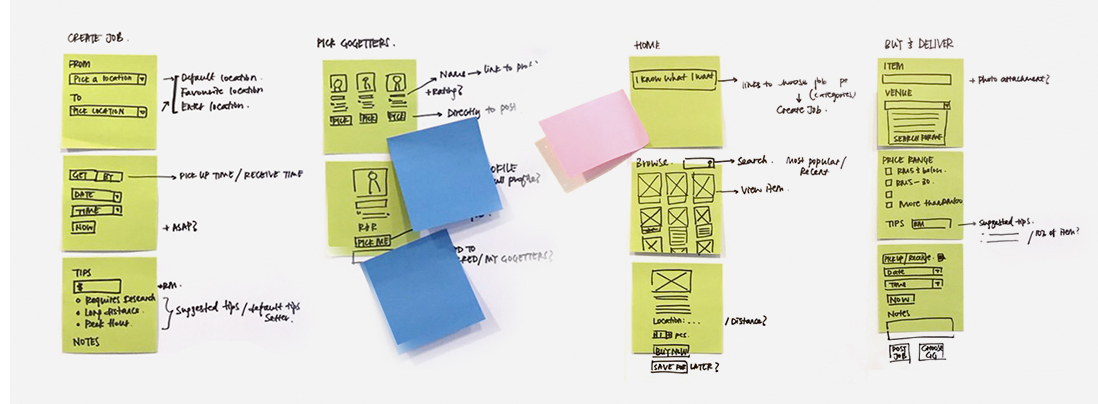 CREATE JOB.
FROM
PICK A LOCATION
TO
PICK LOCATION
Default location.
Favourite location
Enter location.
GET BY
PICK UP TIME / RECEIVE TIME
DATE
TIME
NOW
+ ASAP?
TIPS
$
+RM.
Requires Research
Long distance.
Peak Hour.
Suggested tips / default tips
setter.
NOTES
PICK GOGETTERS.
Name → link to
+Rating?
PICK PICK PICK
Directly to post
profile?
R&R
PICK ME
TO
/ MY GOGETTERS?
HOME
I KNOW WHAT I WANT
links to choose job
(categories)
Create Job.
Browse.
Search.
Most popular /
Recent
View item.
Location: ....
/ Distance?
pcs.
BUY NOW
SAVE FOR LATER?
BUY & DELIVER
ITEM
+ Photo attachment?
VENUE
SEARCH FOR ME
PRICE RANGE
RM5 & below.
RM5 – 30.
More than
TIPS RM
Suggested tips.
/ 10% of item?
PICK UP / Receive.
Date
Time
NOW
Notes
POST
JOB
CHOOSE
GG